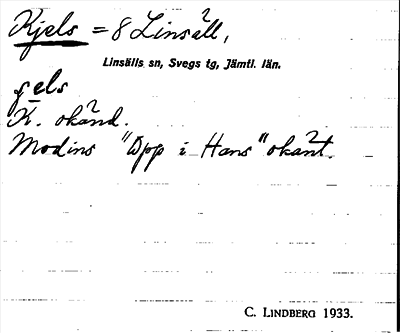 Kjels = 8 Linsäll,
Linsälls sn, Svegs tg, Jämtl. län.
ʃels
K. okänd.
Modins "Opp i Hans" okänt.
C. LINDBERG 1933.